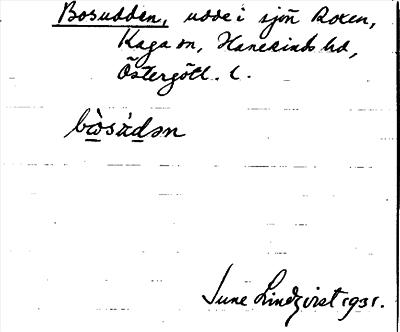 Bosudden, udde i sjön Roxen,
Kaga sn, Hanekinds hd,
Östergötl. l.
bòsùdən
Sune Lindqvist 1931.